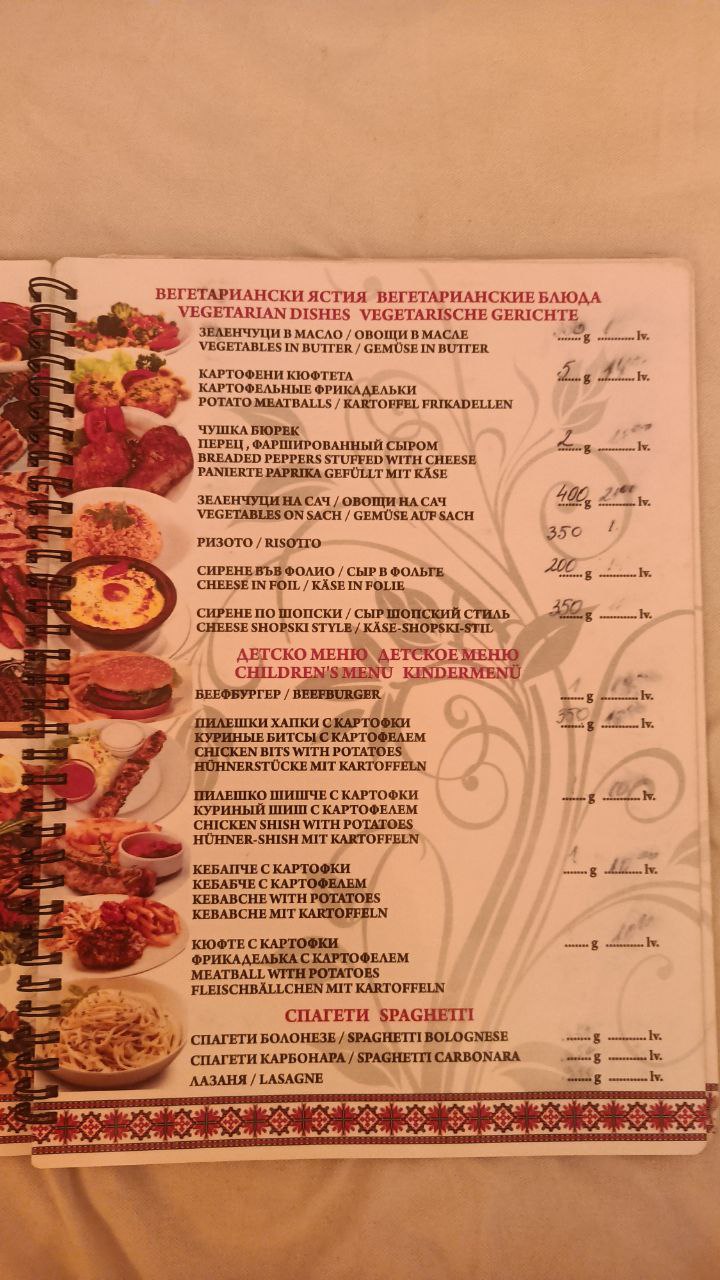 ВЕГЕТАРИАНСКИ ЯСТИЯ ВЕГЕТАРИАНСКИЕ БЛЮДА
VEGETARIAN DISHES VEGETARISCHE GERICHTE
ЗЕЛЕНЧУЦИ В МАСЛО / ОВОЩИ В МАСЛЕ ....... g ........... lv.
VEGETABLES IN BUTTER / GEMÜSE IN BUTTER
КАРТОФЕНИ КЮФТЕТА 5 g ........... lv.
КАРТОФЕЛЬНЫЕ ФРИКАДЕЛЬКИ
POTATO MEATBALLS / KARTOFFEL FRIKADELLEN
ЧУШКА БЮРЕК
ПЕРЕЦ , ФАРШИРОВАННЫЙ СЫРОМ 2 g ........... lv.
BREADED PEPPERS STUFFED WITH CHEESE
PANIERTE PAPRIKA GEFÜLLT MIT KÄSE
ЗЕЛЕНЧУЦИ НА САЧ / ОВОЩИ НА САЧ 400 g ........... lv.
VEGETABLES ON SACH / GEMÜSE AUF SACH
РИЗОТО / RISOTTO 350
СИРЕНЕ ВЪВ ФОЛИО / СЫР В ФОЛЬГЕ 200 g ........... lv.
CHEESE IN FOIL / KÄSE IN FOLIE
СИРЕНЕ ПО ШОПСКИ / СЫР ШОПСКИЙ СТИЛЬ 350 g ........... lv.
CHEESE SHOPSKI STYLE / KÄSE-SHOPSKI-STIL
ДЕТСКО МЕНЮ ДЕТСКОЕ МЕНЮ
CHILDREN'S MENU KINDERMENÜ
БЕЕФБУРГЕР / BEEFBURGER ....... g ........... lv.
ПИЛЕШКИ ХАПКИ С КАРТОФКИ 350 g ........... lv.
КУРИНЫЕ БИТСЫ С КАРТОФЕЛЕМ
CHICKEN BITS WITH POTATOES
HÜHNERSTÜCKE MIT KARTOFFELN
ПИЛЕШКО ШИШЧЕ С КАРТОФКИ ....... g ........... lv.
КУРИНЫЙ ШИШ С КАРТОФЕЛЕМ
CHICKEN SHISH WITH POTATOES
HÜHNER-SHISH MIT KARTOFFELN
КЕБАПЧЕ С КАРТОФКИ 1 g ........... lv.
КЕБАБЧЕ С КАРТОФЕЛЕМ
KEBABCHE WITH POTATOES
KEBABCHE MIT KARTOFFELN
КЮФТЕ С КАРТОФКИ ....... g ........... lv.
ФРИКАДЕЛЬКА С КАРТОФЕЛЕМ
MEATBALL WITH POTATOES
FLEISCHBÄLLCHEN MIT KARTOFFELN
СПАГЕТИ SPAGHETTI
СПАГЕТИ БОЛОНЕЗЕ / SPAGHETTI BOLOGNESE ....... g ........... lv.
СПАГЕТИ КАРБОНАРА / SPAGHETTI CARBONARA ....... g ........... lv.
ЛАЗАНЯ / LASAGNE ....... g ........... lv.